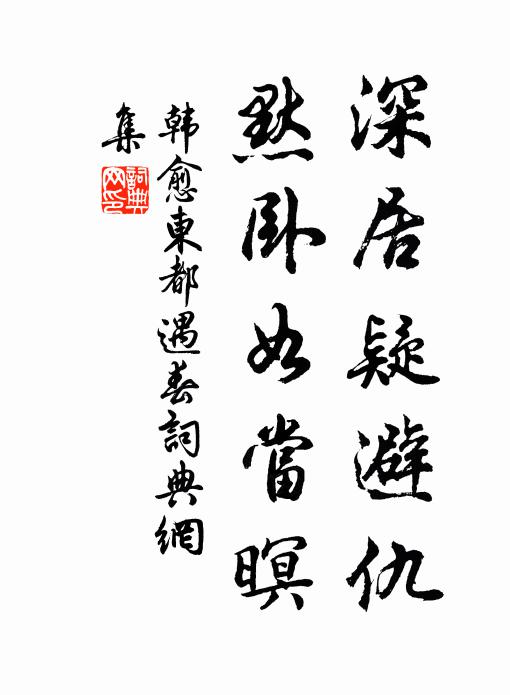 深居疑避仇
默卧如當暝
韩愈東都遇春詞典網
集
詞典
网印